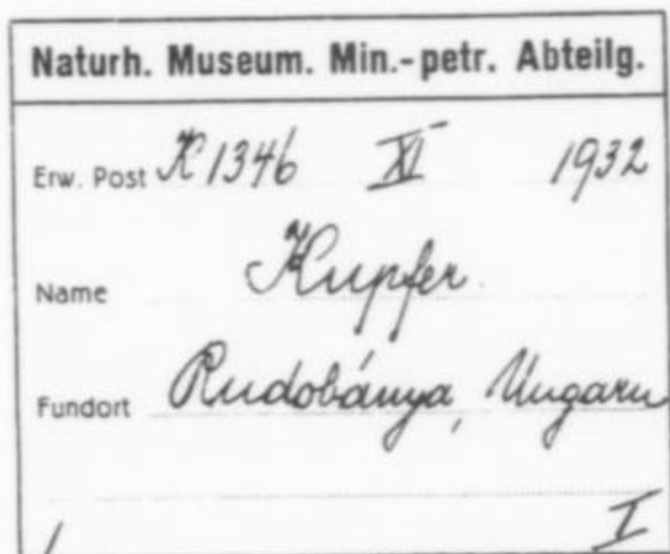 Naturh. Museum. Min.-petr. Abteilg.
Erw. Post K 1346 XI 1932
Name Kupfer
Fundort Rudobánya, Ungarn
I